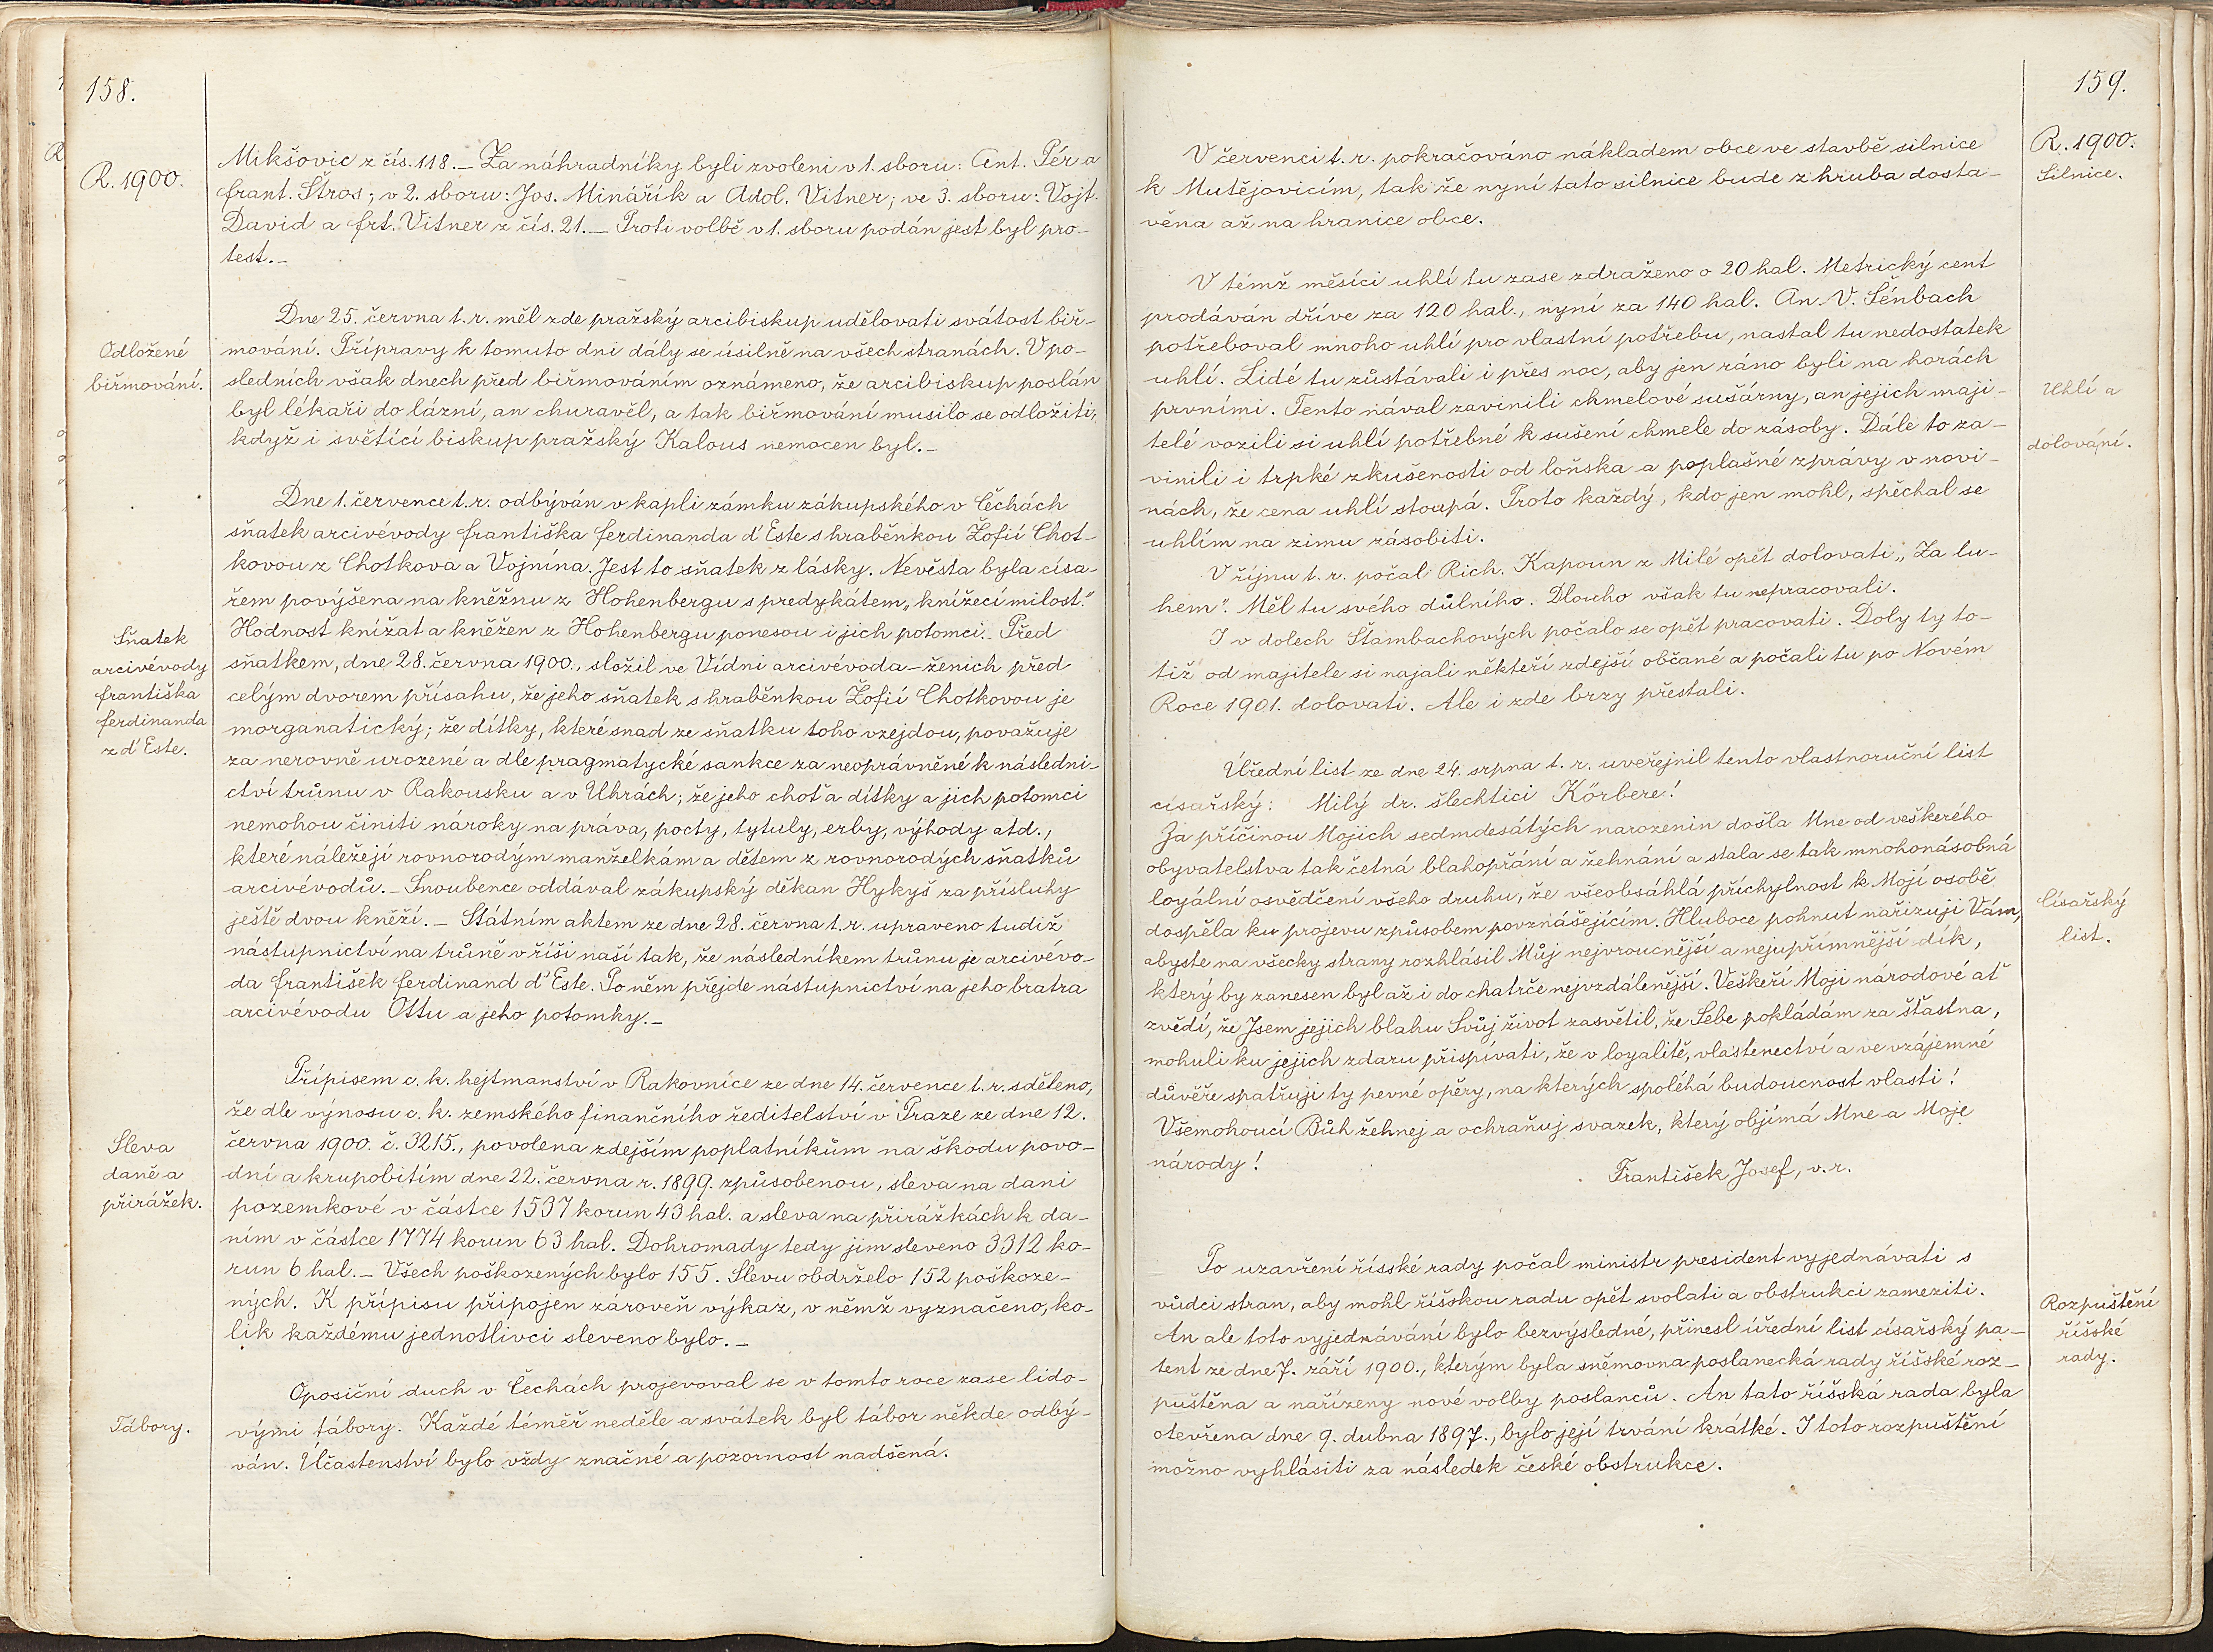 158.
R. 1900.
Mikšovic z čís. 118. – Za náhradníky byli zvoleni v 1. sboru: Ant. Pér a
Frant. Štros; v 2. sboru: Jos. Minářík a Adol. Vitner; ve 3. sboru: Vojt.
David a Frt. Vitner z čís. 21. – Proti volbě v 1. sboru podán jest byl pro-
test. –
Odložené
biřmování.
Dne 25. června t. r. měl zde pražský arcibiskup udělovati svátost biř-
mování. Přípravy k tomuto dni dály se úsilně na všech stranách. V po-
sledních však dnech před biřmováním oznámeno, že arcibiskup poslán
byl lékaři do lázní, an churavěl, a tak biřmování musilo se odložiti,
když i světící biskup pražský Kalous nemocen byl. –
Sňatek
arcivévody
Františka
Ferdinanda
z d'Este.
Dne 1. července t. r. odbýván v kapli zámku zákupského v Čechách
sňatek arcivévody Františka Ferdinanda d'Este s hraběnkou Žofií Chot-
kovou z Chotkova a Vojnína. Jest to sňatek z lásky. Nevěsta byla císa-
řem povýšena na kněžnu z Hohenbergu s predykátem „knížecí milost."
Hodnost knížat a kněžen z Hohenbergu ponesou i jich potomci. Před
sňatkem, dne 28. června 1900., složil ve Vídni arcivévoda – ženich před
celým dvorem přísahu, že jeho sňatek s hraběnkou Žofií Chotkovou je
morganatický; že dítky, které snad ze sňatku toho vzejdou, považuje
za nerovně urozené a dle pragmatycké sankce za neoprávněné k následni-
ctví trůnu v Rakousku a v Uhrách; že jeho choť a dítky a jich potomci
nemohou činiti nároky na práva, pocty, tytuly, erby, výhody atd.,
které náležejí rovnorodým manželkám a dětem z rovnorodých sňatků
arcivévodů. – Snoubence oddával zákupský děkan Hykyš za přísluhy
ještě dvou kněží. – Státním aktem ze dne 28. června t. r. upraveno tudiž
nástupnictví na trůně v říši naší tak, že následníkem trůnu je arcivévo-
da František Ferdinand d'Este. Po něm přejde nástupnictví na jeho bratra
arcivévodu Ottu a jeho potomky. –
Sleva
daně a
přirážek.
Přípisem c. k. hejtmanství v Rakovníce ze dne 14. července t. r. sděleno,
že dle výnosu c. k. zemského finančního ředitelství v Praze ze dne 12.
června 1900. č. 3215., povolena zdejším poplatníkům na škodu povo-
dní a krupobitím dne 22. června r. 1899. způsobenou, sleva na dani
pozemkové v částce 1537 korun 43 hal. a sleva na přirážkách k da-
ním v částce 1774 korun 63 hal. Dohromady tedy jim sleveno 3312 ko-
run 6 hal. – Všech poškozených bylo 155. Slevu obdrželo 152 poškoze-
ných. K přípisu připojen zároveň výkaz, v němž vyznačeno, ko-
lik každému jednotlivci sleveno bylo. –
Tábory.
Oposiční duch v Čechách projevoval se v tomto roce zase lido-
vými tábory. Každé téměř neděle a svátek byl tábor někde odbý-
ván. Účastenství bylo vždy značné a pozornost nadšená.
159.
R. 1900.
Silnice.
V červenci t. r. pokračováno nákladem obce ve stavbě silnice
k Mutějovicím, tak že nyní tato silnice bude zhruba dosta-
věna až na hranice obce.
Uhlí a
dolování.
V témž měsíci uhlí tu zase zdraženo o 20 hal. Metrický cent
prodáván dříve za 120 hal., nyní za 140 hal. An V. Sénbach
potřeboval mnoho uhlí pro vlastní potřebu, nastal tu nedostatek
uhlí. Lidé tu zůstávali i přes noc, aby jen ráno byli na horách
prvními. Tento nával zavinili chmelové sušárny, an jejich maji-
telé vozili si uhlí potřebné k sušení chmele do zásoby. Dále to za-
vinili i trpké zkušenosti od loňska a poplašné zprávy v novi-
nách, že cena uhlí stoupá. Proto každý, kdo jen mohl, spěchal se
uhlím na zimu zásobiti.
V říjnu t. r. počal Rich. Kapoun z Milé opět dolovati „Za lu-
hem". Měl tu svého důlního. Dlouho však tu nepracovali.
I v dolech Štambachových počalo se opět pracovati. Doly ty to-
tiž od majitele si najali někteří zdejší občané a počali tu po Novém
Roce 1901. dolovati. Ale i zde brzy přestali.
Císařský
list.
Úřední list ze dne 24. srpna t. r. uveřejnil tento vlastnoruční list
císařský: Milý dr. šlechtici Körbere!
Za příčinou Mojich sedmdesátých narozenin došla Mne od veškerého
obyvatelstva tak četná blahopřání a žehnání a stala se tak mnohonásobná
loyální osvědčení všeho druhu, že všeobsáhlá příchylnost k Mojí osobě
dospěla ku projevu způsobem povznášejícím. Hluboce pohnut nařizuji Vám,
abyste na všecky strany rozhlásil Můj nejvroucnější a nejupřímnější dík,
který by zanesen byl až i do chatrče nejvzdálenější. Veškeří Moji národové ať
zvědí, že Jsem jejich blahu Svůj život zasvětil, že Sebe pokládám za šťastna,
mohuli ku jejich zdaru přispívati, že v loyalitě, vlastenectví a ve vzájemné
důvěře spatřuji ty pevné opěry, na kterých spoléhá budoucnost vlasti!
Všemohoucí Bůh žehnej a ochraňuj svazek, který objímá Mne a Moje
národy!
František Josef, v. r.
Rozpuštění
říšské
rady.
Po uzavření říšské rady počal ministr president vyjednávati s
vůdci stran, aby mohl říšskou radu opět svolati a obstrukci zameziti.
An ale toto vyjednávání bylo bezvýsledné, přinesl úřední list císařský pa-
tent ze dne 7. září 1900., kterým byla sněmovna poslanecká rady říšské roz-
puštěna a nařízeny nové volby poslanců. An tato říšská rada byla
otevřena dne 9. dubna 1897., bylo její trvání krátké. I toto rozpuštění
možno vyhlásiti za následek české obstrukce.